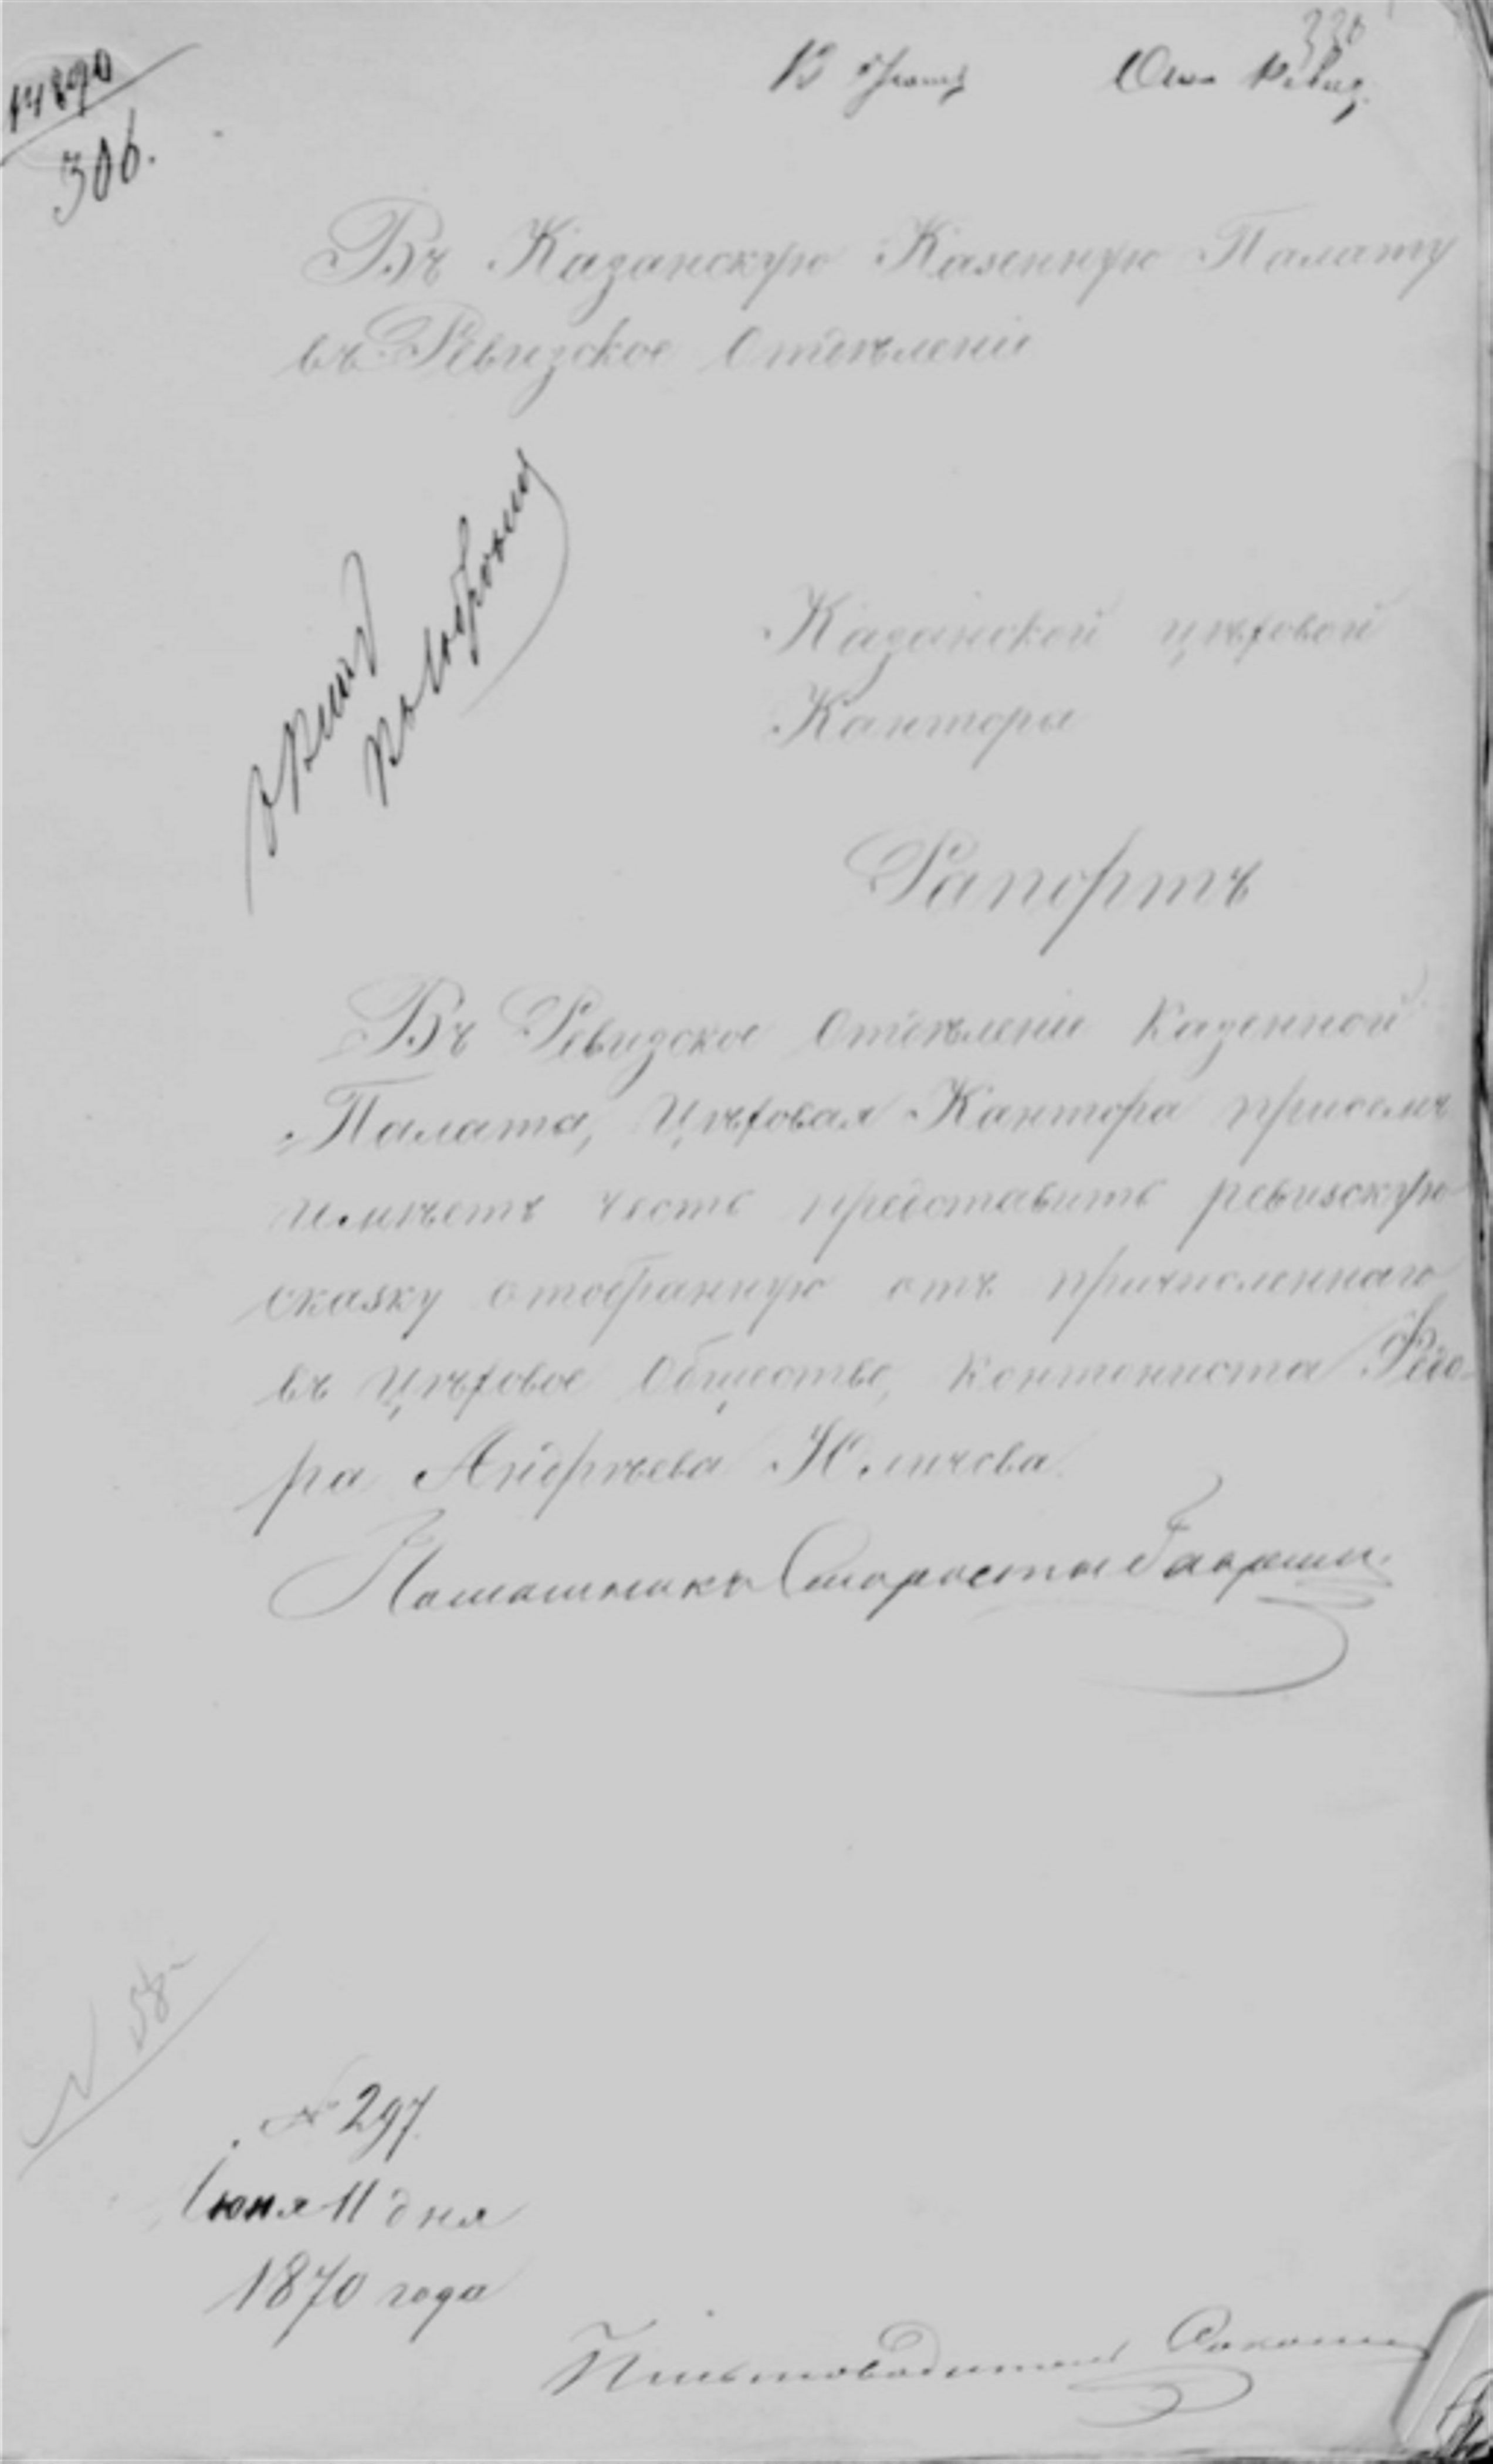 330
14890
13 Отд. Ревиз.
306.
Въ Казанскую Казенную Палату
въ Ревизское Отделѣніе
Казанской цѣховой
Кантора
Рапортъ
Въ Ревизское Отдѣленіе Казенной
Палата, Цѣховая Кантора присемъ
имѣетъ честь представить ревизскую
сказку отобранную отъ причисленнаго
въ Цѣховое Общество, контониста Федо-
ра Андрѣева Юличева
Старосты
№ 58
№ 297.
Іюня 11 дня
1870 года
Письмоводитель